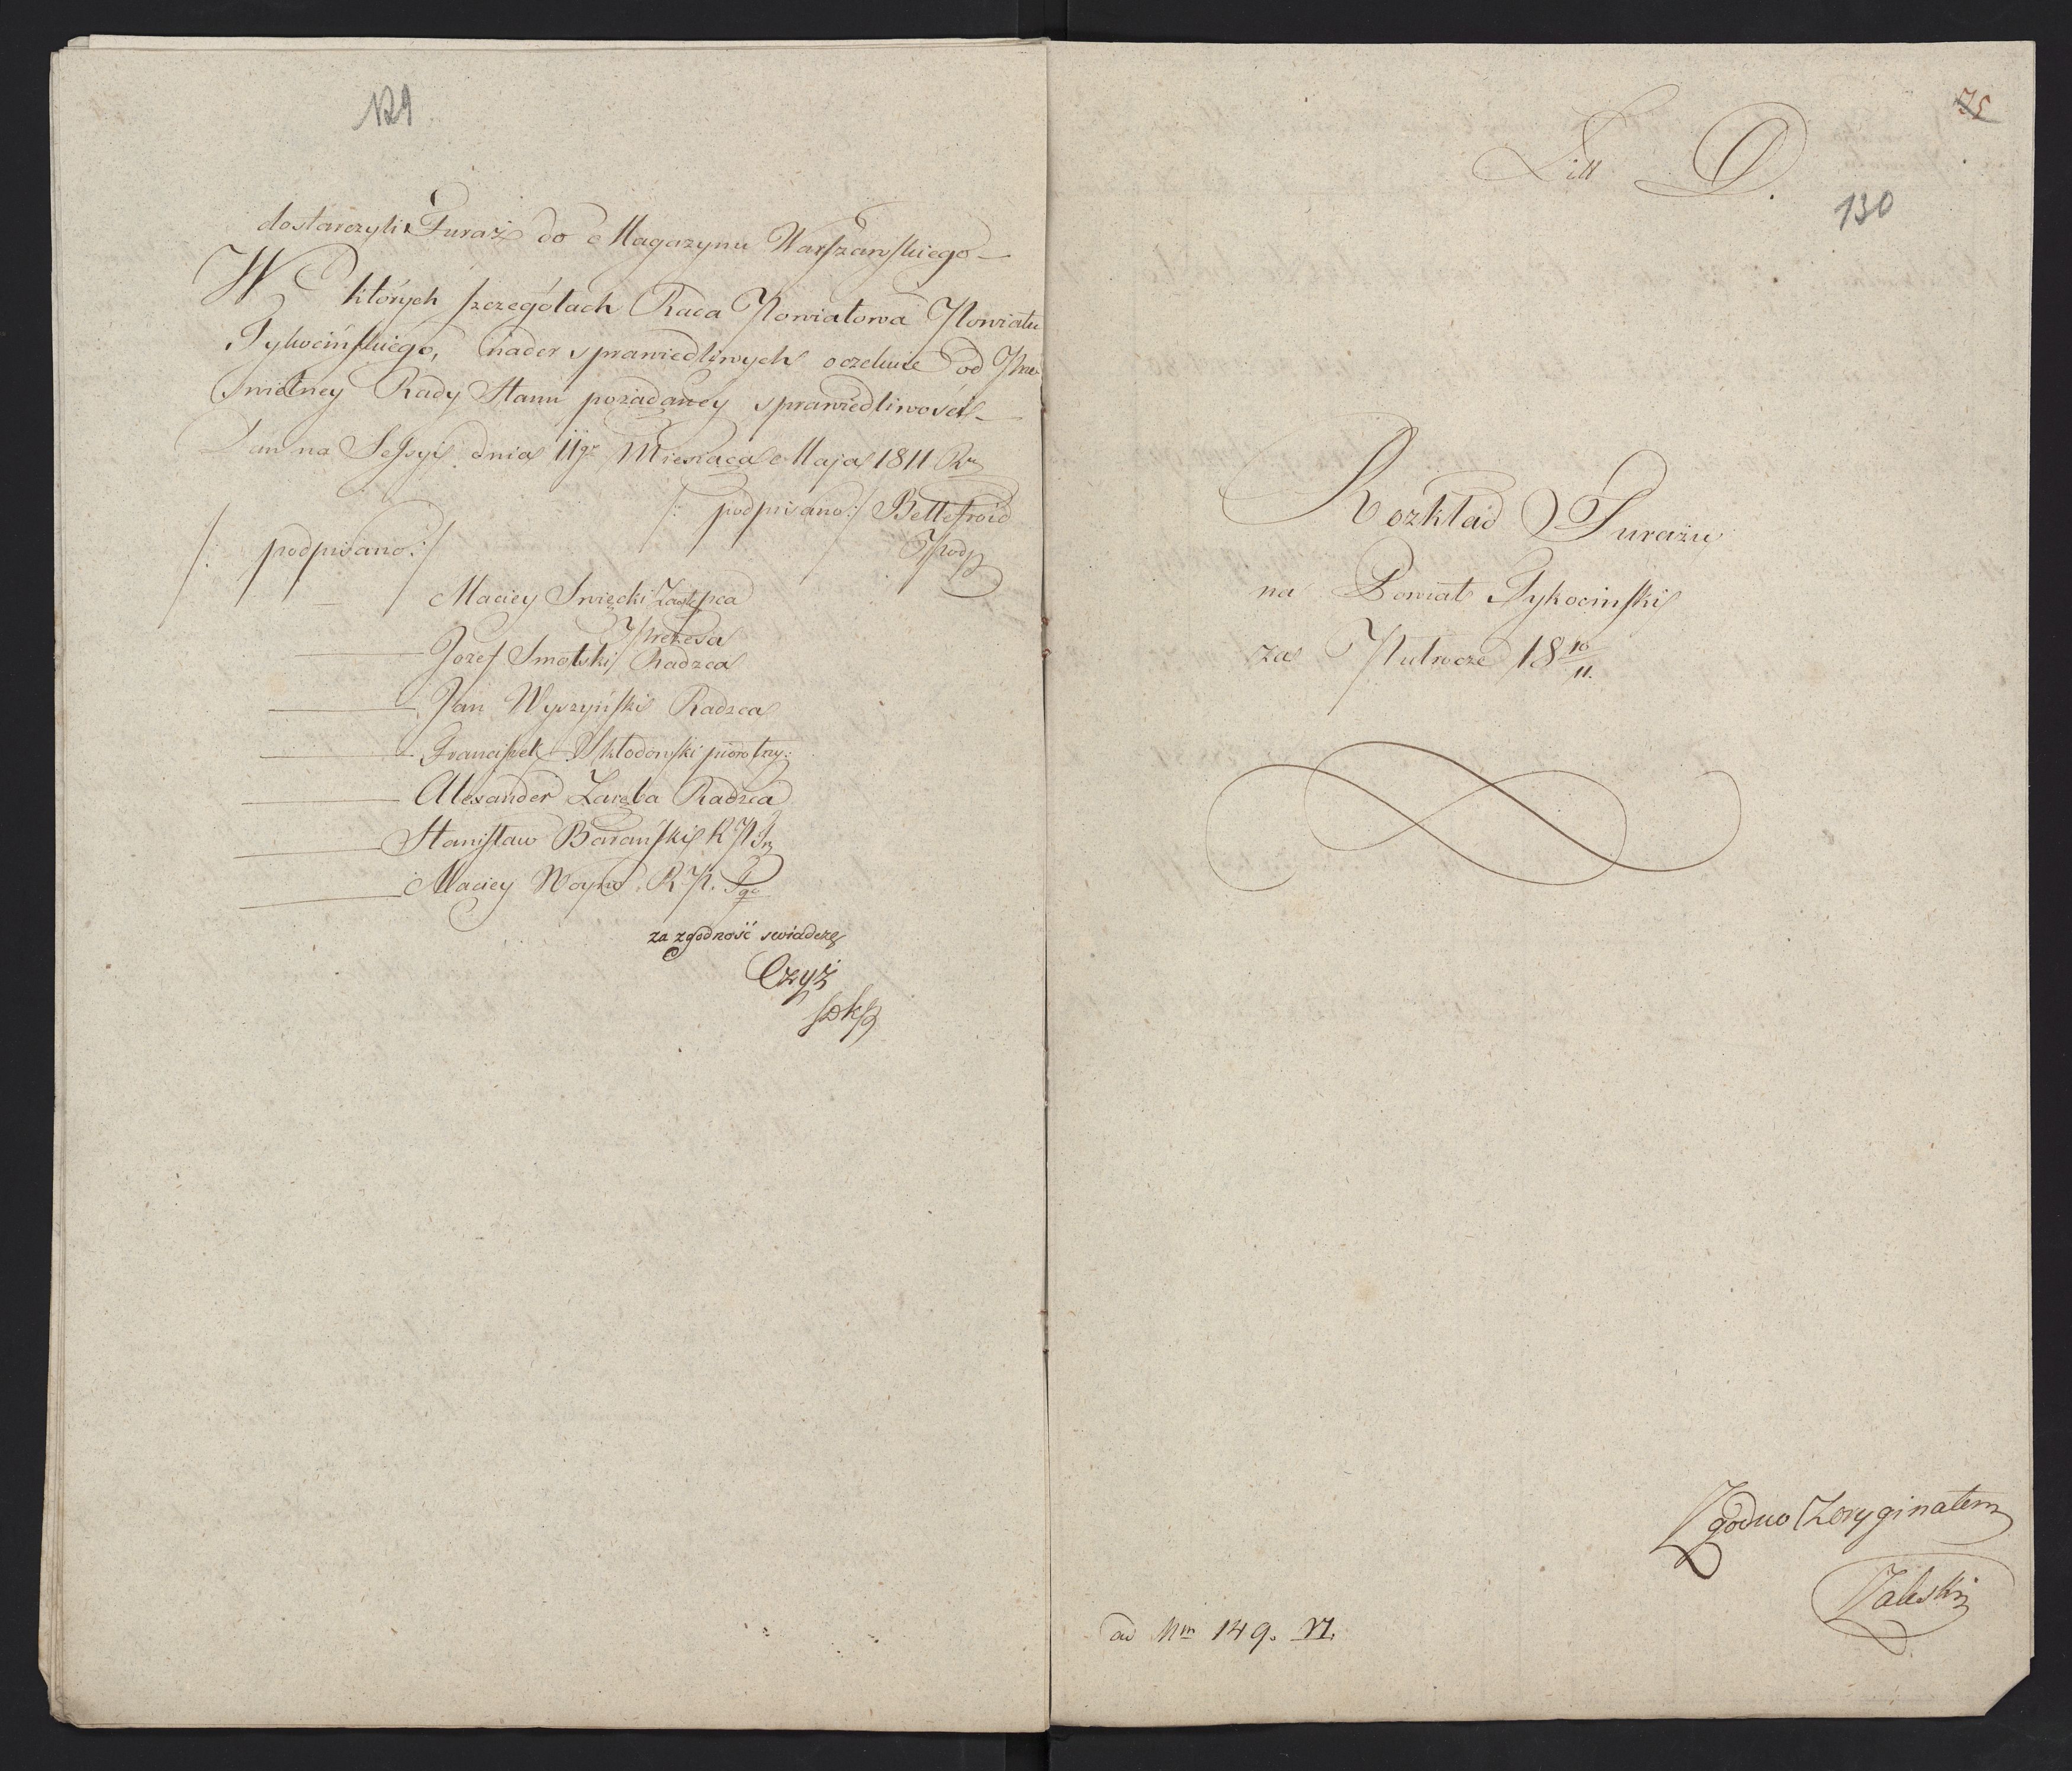 129
dostarczyli Furaż do Magazynu Warszawskiego –
W których szczegółach Rada Powiatowa Powiatu
Tykocińskiego, nader sprawiedliwych oczekuie od Prze-
świetney Rady Stanu pożądaney sprawiedliwości –
Dan na Sessyi dnia 11go Miesiąca Maja 1811 Ru
/: podpisano :/ Bellefroid
Podp
/: podpisano :/
Maciey Święcki Zastępca
Prezesa
Jozef Smolski Radzca
Jan Wyszyński Radzca
Franciszek Skłodowski
Alexander Zaręba Radzca
Stanisław Barański R. P.
Maciey Woyno R. P. Tgo
za zgodność swiadczę
Czyż
75
Litt D.
130
Rozkład Furażu
na Powiat Tykocinski
za Putrocze 18 10/11.
Zgodno Z oryginałem
Zaleski
ad Nm 149. VI.